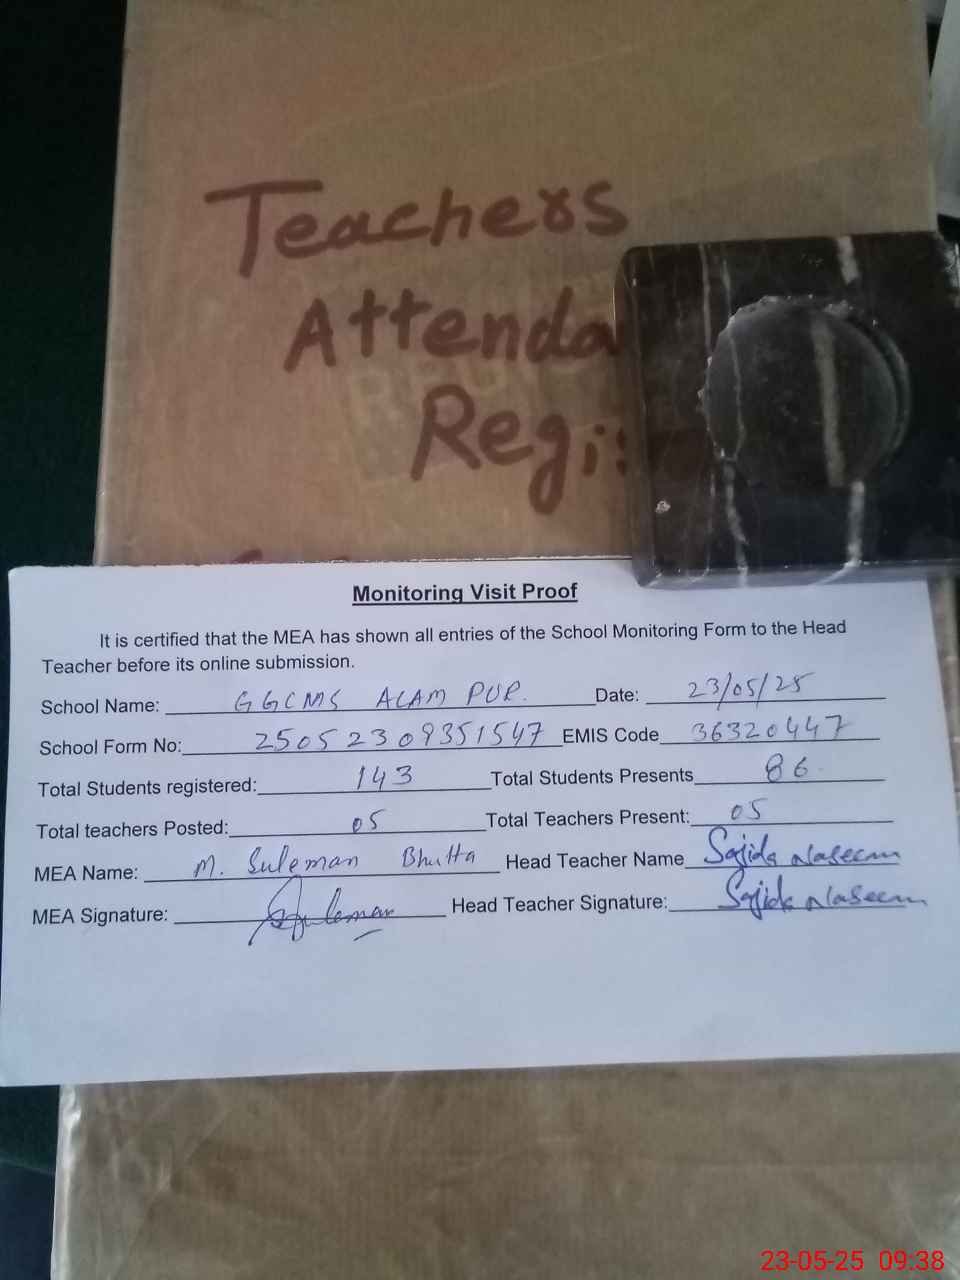 Teachers
Attenda
Regis
Monitoring Visit Proof
It is certified that the MEA has shown all entries of the School Monitoring Form to the Head
Teacher before its online submission.
School Name: GGCMS ALAM PUR. Date: 23/05/25
School Form No: 25052309351547 EMIS Code 36320447
Total Students registered: 143 Total Students Presents 86
Total teachers Posted: 05 Total Teachers Present: 05
MEA Name: M. Suleman Bhutta Head Teacher Name Sajida Naseem
MEA Signature: Suleman Head Teacher Signature: Sajida Naseem
23-05-25 09:38